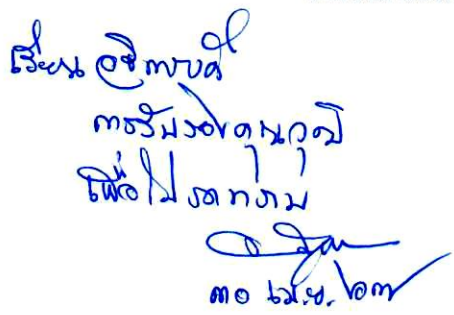 เรียน อธิการบดี
การรับรองคุณวุฒิ
เพื่อโปรดทราบ
๓๐ เม.ย. ๖๗